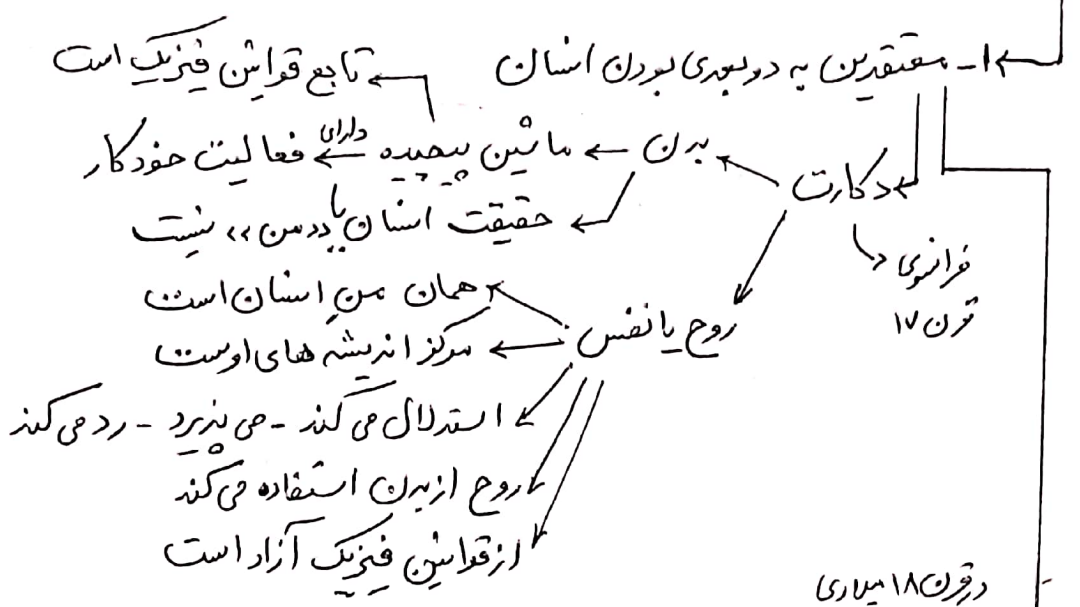 ۱- معتقدین به دو بعدی بودن انسان
تابع قوانین فیزیک است
دکارت
فرانسوی
قرن ۱۷
بدن
ماشین پیچیده
دارای
فعالیت خودکار
حقیقت انسان یا «من» نیست
روح یا نفس
همان منِ انسان است
مرکز اندیشه های اوست
استدلال می کند - می پذیرد - رد می کند
روح از بدن استفاده می کند
از قوانین فیزیک آزاد است
در قرن ۱۸ میلادی